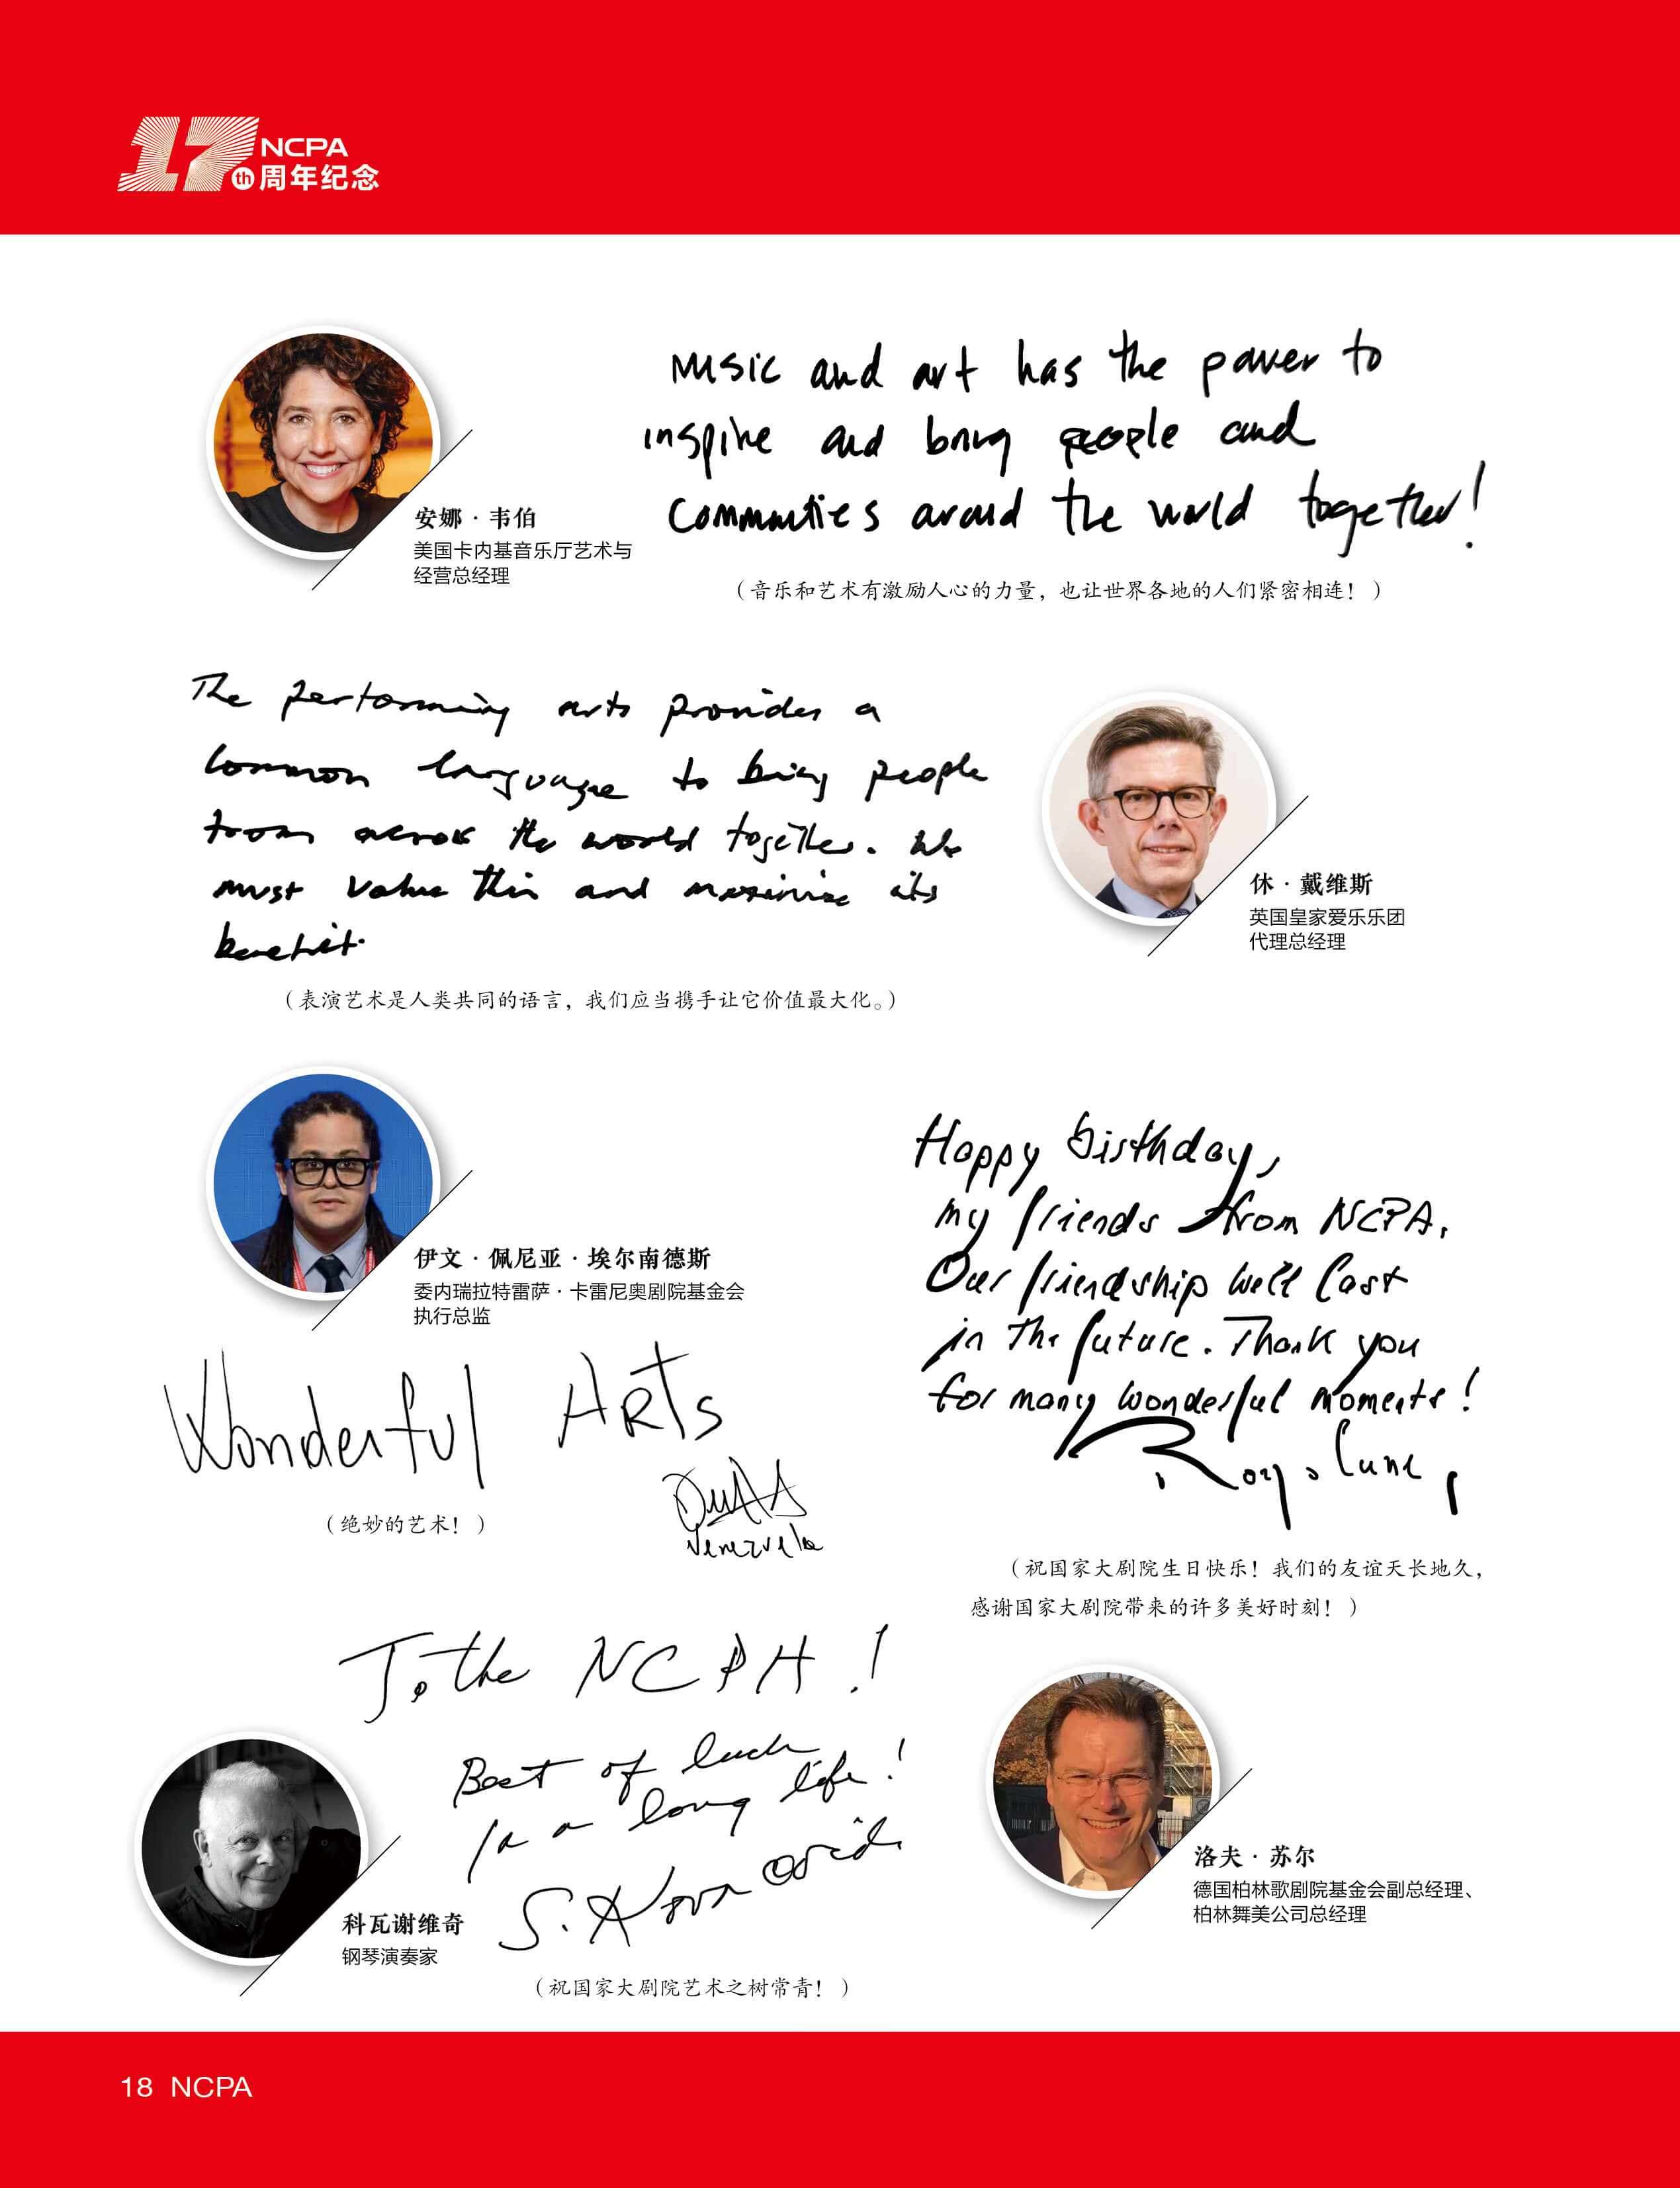 17th NCPA
周年纪念
Music and art has the power to
inspire and bring people and
Communities around the world together!
安娜·韦伯
美国卡内基音乐厅艺术与
经营总经理
（音乐和艺术有激励人心的力量，也让世界各地的人们紧密相连！）
The performing arts provides a
common language to bring people
from across the world together. We
must value this and maximise its
benefit.
休·戴维斯
英国皇家爱乐乐团
代理总经理
（表演艺术是人类共同的语言，我们应当携手让它价值最大化。）
伊文·佩尼亚·埃尔南德斯
委内瑞拉特雷萨·卡雷尼奥剧院基金会
执行总监
Wonderful ARTs
Venezuela
（绝妙的艺术！）
Happy birthday,
my friends from NCPA.
Our friendship will last
in the future. Thank you
for many wonderful moments!
（祝国家大剧院生日快乐！我们的友谊天长地久，
感谢国家大剧院带来的许多美好时刻！）
洛夫·苏尔
德国柏林歌剧院基金会副总经理、
柏林舞美公司总经理
To the NCPA!
Best of luck
for a long life!
S. Kovacevich
科瓦谢维奇
钢琴演奏家
（祝国家大剧院艺术之树常青！）
18 NCPA